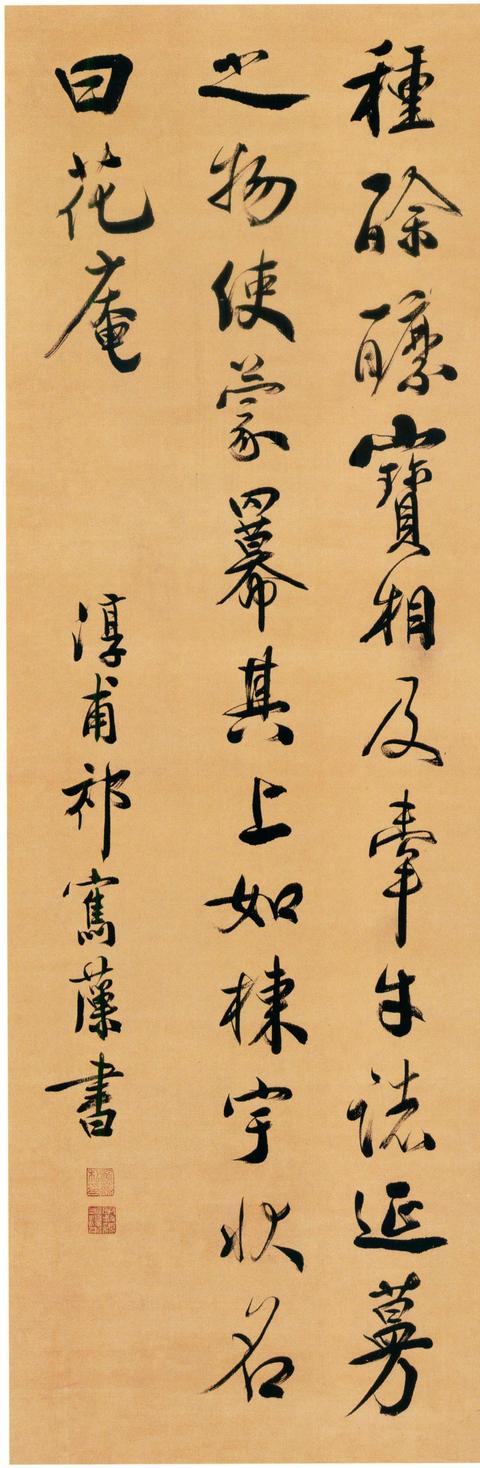 種酴醿寶相及牽牛諸延蔓
之物使蒙羃其上如棟宇狀名
曰花庵
淳甫祁寯藻書